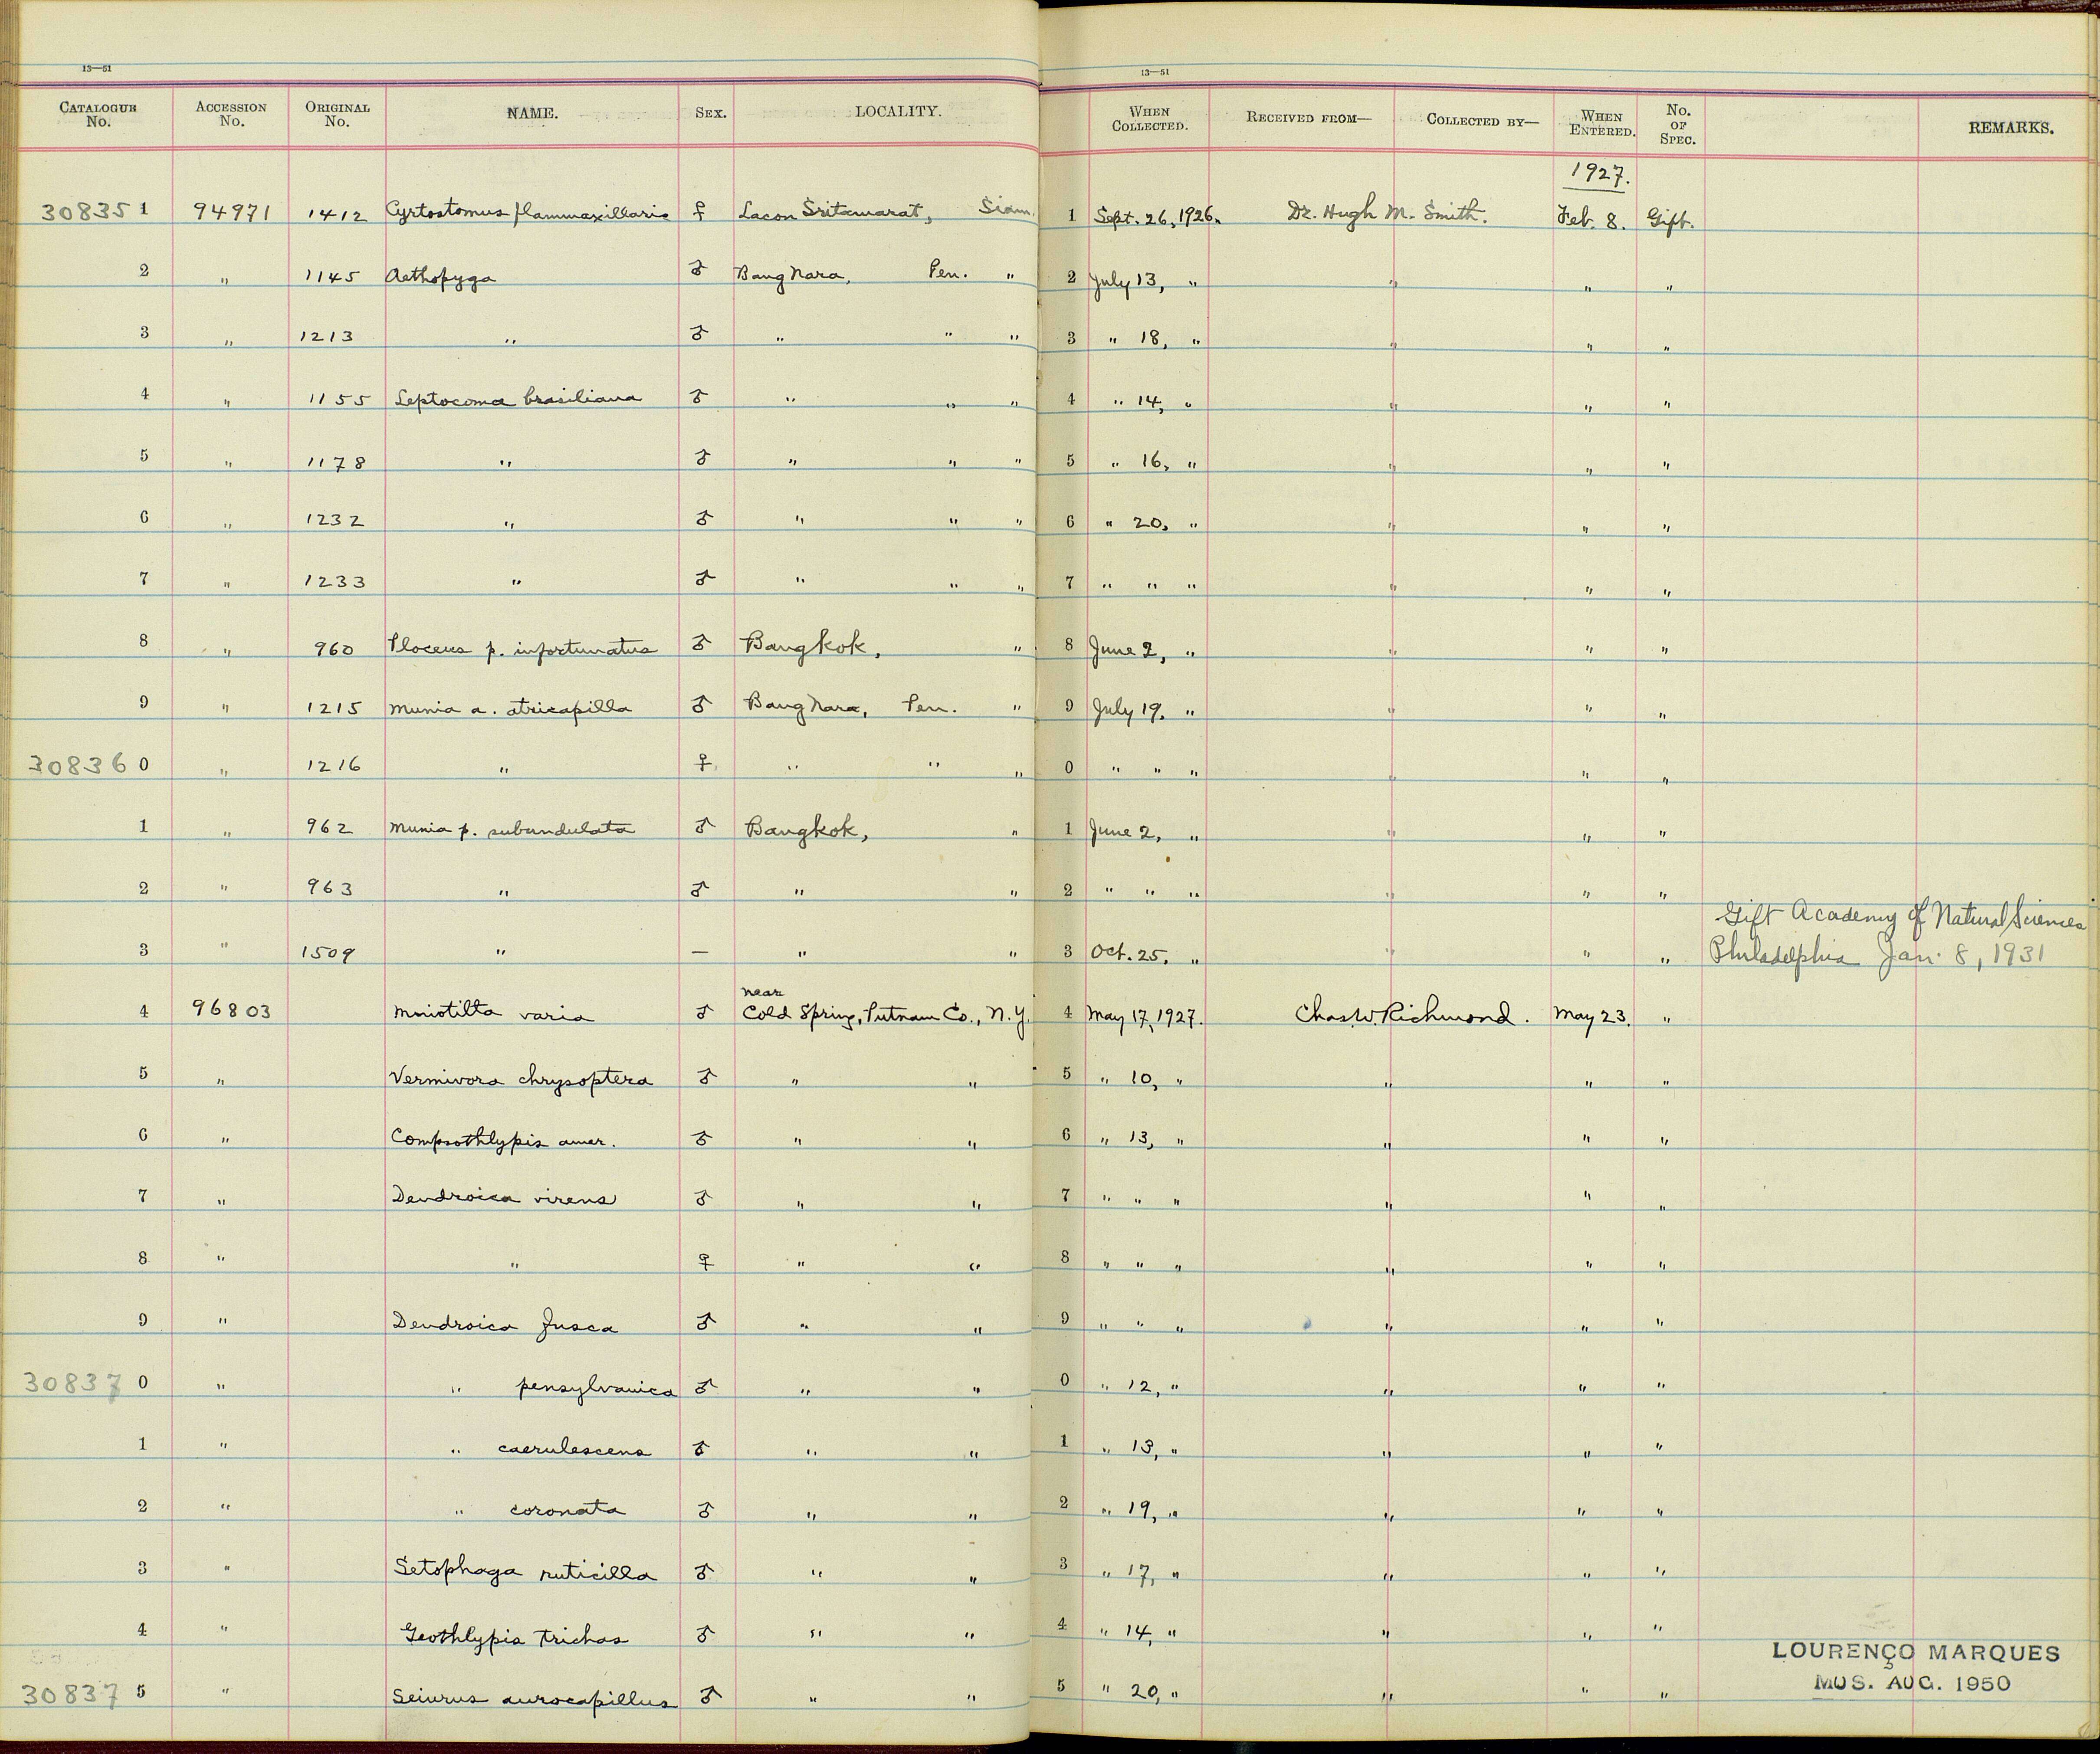 13—51
13—51
CATALOGUE No. ACCESSION No. ORIGINAL No. NAME. SEX. LOCALITY. WHEN COLLECTED. RECEIVED FROM— COLLECTED BY— WHEN ENTERED. No. OF SPEC. REMARKS.
1927.
308351 94971 1412 Cyrtostomus flammaxillaris ♀ Lacon Sritamarat, Siam. 1 Sept. 26, 1926. Dr. Hugh M. Smith. Feb. 8. Gift.
2 " 1145 Aethopyga ♂ Bang Nara, Pen. " 2 July 13, " " " "
3 " 1213 " ♂ " " " 3 " 18, " " " "
4 " 1155 Leptocoma brasiliana ♂ " " " 4 " 14, " " " "
5 " 1178 " ♂ " " " 5 " 16, " " " "
6 " 1232 " ♂ " " " 6 " 20, " " " "
7 " 1233 " ♂ " " " 7 " " " " " "
8 " 960 Ploceus p. infortunatus ♂ Bangkok, " 8 June 2, " " " "
9 " 1215 Munia a. atricapilla ♂ Bang Nara, Pen. " 9 July 19, " " " "
308360 " 1216 " ♀ " " " 0 " " " " " "
1 " 962 Munia p. subundulata ♂ Bangkok, " 1 June 2, " " " "
2 " 963 " ♂ " " 2 " " " " " "
Gift Academy of Natural Sciences
3 " 1509 " — " " 3 Oct. 25, " " " " Philadelphia Jan. 8, 1931
near
4 96803 Mniotilta varia ♂ Cold Spring, Putnam Co., N.Y. 4 May 17, 1927. Chas. W. Richmond. May 23. "
5 " Vermivora chrysoptera ♂ " " 5 " 10, " " " "
6 " Compsothlypis amer. ♂ " " 6 " 13, " " " "
7 " Dendroica virens ♂ " " 7 " " " " " "
8 " " ♀ " " 8 " " " " " "
9 " Dendroica fusca ♂ " " 9 " " " " " "
308370 " " pensylvanica ♂ " " 0 " 12, " " " "
1 " " caerulescens ♂ " " 1 " 13, " " " "
2 " " coronata ♂ " " 2 " 19, " " " "
3 " Setophaga ruticilla ♂ " " 3 " 17, " " " "
4 " Geothlypis trichas ♂ " " 4 " 14, " " " "
LOURENÇO MARQUES
308375 " Seiurus aurocapillus ♂ " " 5 " 20, " " " " MUS. AUG. 1950